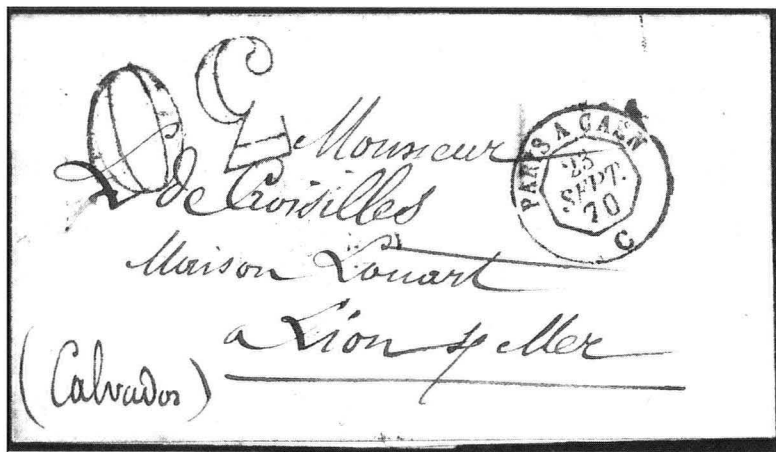 Monsieur
de Croisilles
Maison Louart
a Lion s/ Mer
(Calvados)
PARIS A CAEN
23
SEPT.
70
C